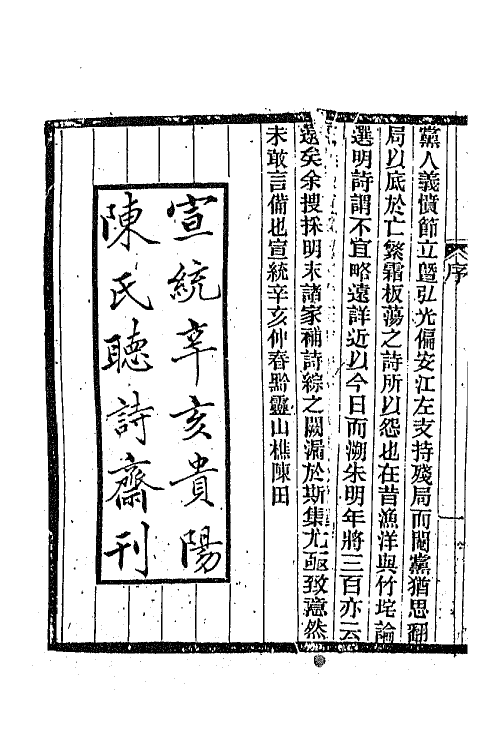 序
黨人義憤節立曁弘光偏安江左支持殘局而閹黨猶思翻
局以底於亡繁霜板蕩之詩所以怨也在昔漁洋與竹垞論
選明詩謂不宜略遠詳近以今日而溯朱明年將三百亦云
遠矣余搜採明末諸家補詩綜之闕漏於斯集尤亟致意然
未敢言備也宣統辛亥仲春黔靈山樵陳田
宣統辛亥貴陽
陳氏聽詩齋刊